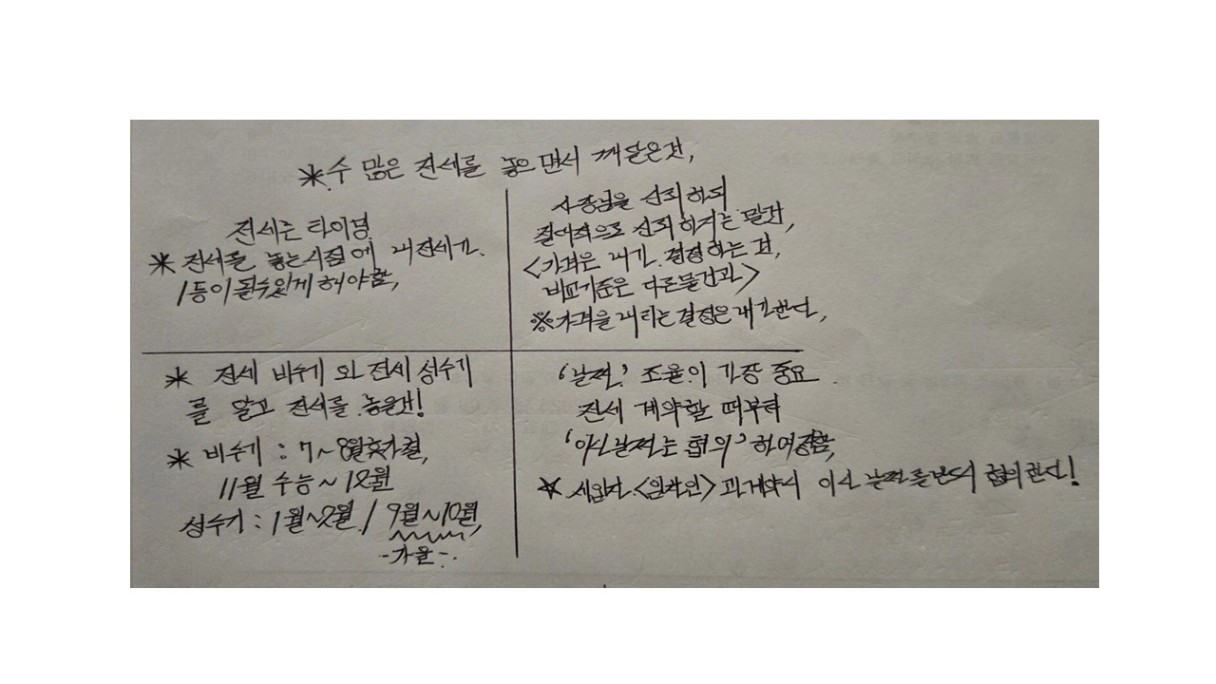 *수 많은 전세를 놓으면서 깨달은것,
전세는 타이밍
* 전세를 놓는시점에 내전세가
1등이 될수있게 해야함,
사장님을 신뢰하되
절대적으로 신뢰하지는 말것,
<가격은 내가 결정하는 것,
비교기준은 다른물건과>
※가격을 내리는결정은 내가한다,
* 전세 비수기 와 전세 성수기
를 알고 전세를 놓을것!
* 비수기 : 7~8월휴가철,
11월 수능~12월
성수기 : 1월~2월 / 9월~10월,
-가을-
'날짜' 조율이 가장 중요
전세 계약할 때부터
'이사날짜는 협의' 하여야함,
* 세입자 <임차인> 과계약시 이사 날짜를반드시 협의한다!